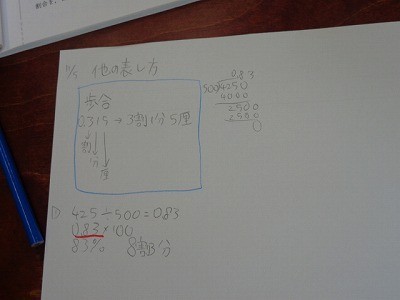 11/5 他の表し方
歩合
0.315 → 3割1分5厘
割
分
厘
0.83
500 4250
4000
2500
2500
0
① 425÷500=0.83
0.83×100
83% 8割3分